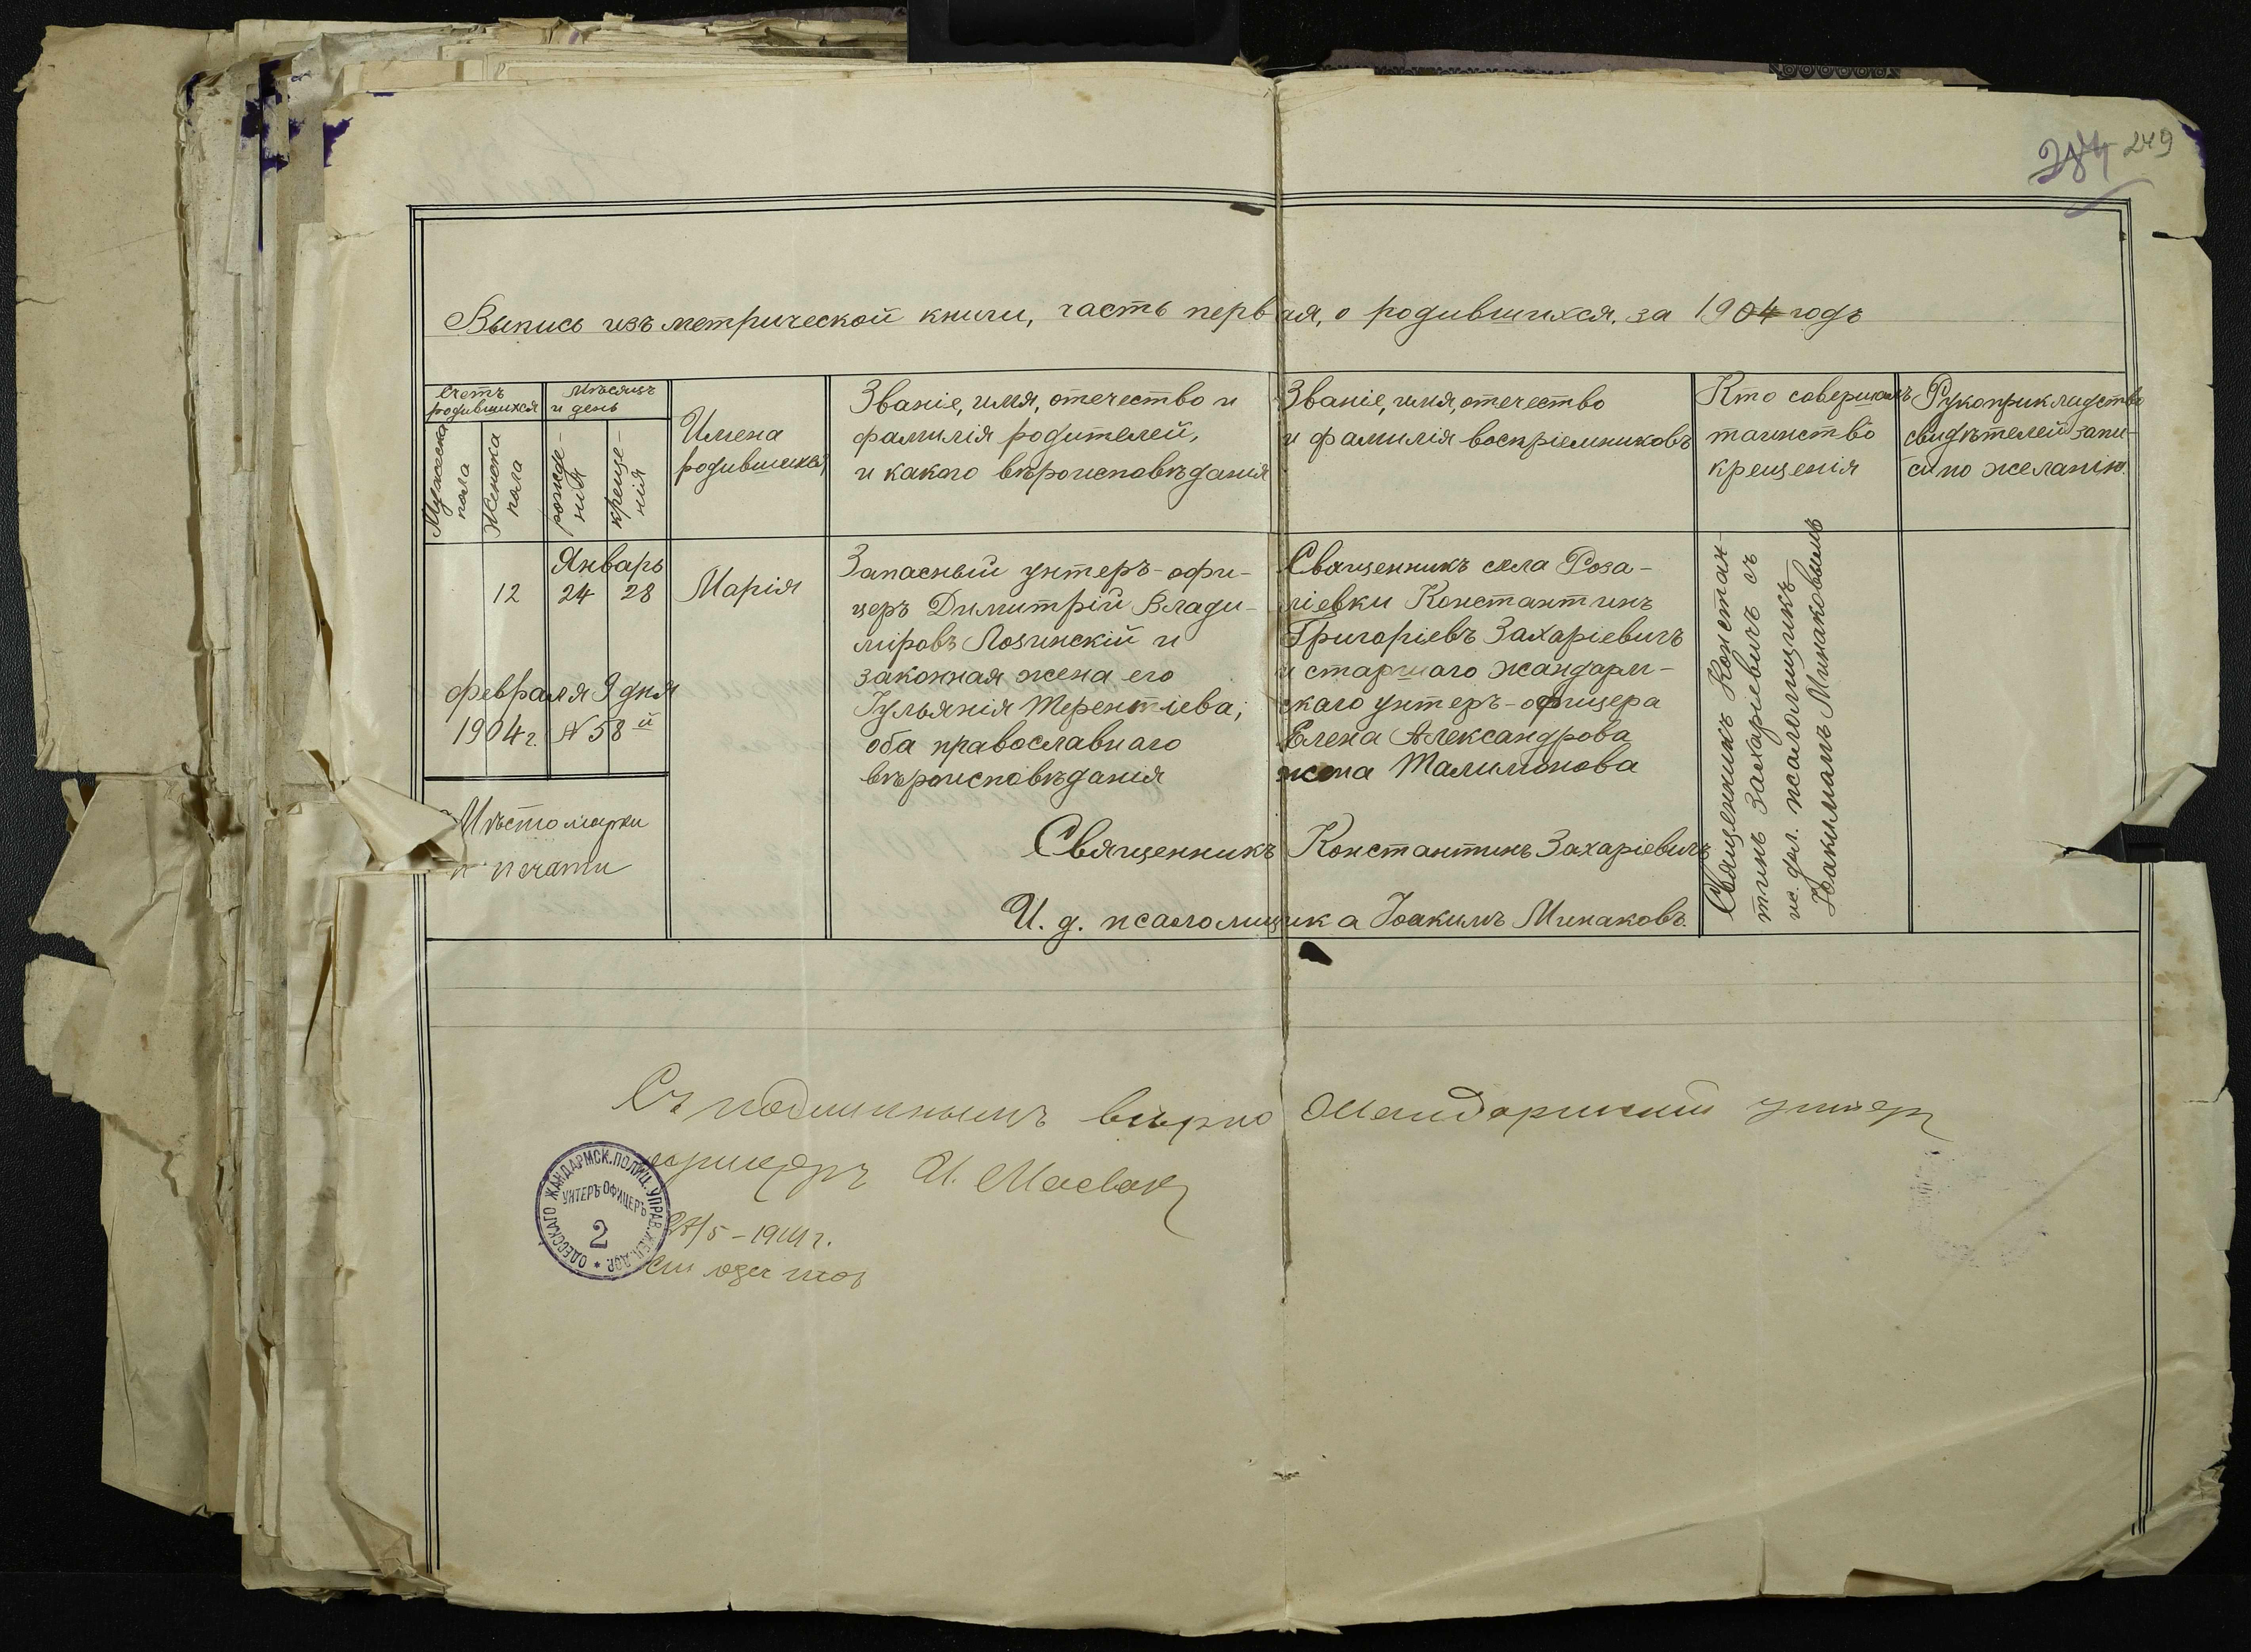 249
Выпись изъ метрической книги, часть первая, о родившихся, за 1904 годъ
Счетъ
родившихся
Мужска
пола
Женска
пола
Мѣсяцъ
и день
рожде-
нія
креще-
нія
Имена
родившихся
Званіе, имя, отечество и
фамилія родителей,
и какого вѣроисповѣданія
Званіе, имя, отечество
и фамилія воспріемниковъ
Кто совершалъ
таинство
крещенія
Рукоприкладство
свидѣтелей запи-
си по желанію.
12
Январь
24 28
февраля 9 дня
1904 г. № 58й
Мѣсто марки
и печати
Марія
Запасный унтеръ-офи-
церъ Димитрій Влади-
міровъ Лозинскій и
законная жена его
Іульянія Терентіева;
оба православнаго
вѣроисповѣданія
Священникъ села Роза-
ліевки Константинъ
Григоріевъ Захаріевичъ
и старшаго жандарм-
скаго унтеръ-офицера
Елена Александрова
жена Малимонова
Священникъ Констан-
тинъ Захаріевичъ съ
ис. дол. псаломщикъ
Іоакимомъ Минаковымъ
Священникъ Константинъ Захаріевичъ
И. д. псаломщика Іоакимъ Минаковъ.
Съ подлиннымъ вѣрно Жандармский унтер
офицеръ И.
/5 – 1911 г.
ОДЕССКАГО ЖАНДАРМСК. ПОЛИЦ. УПРАВ. ЖЕЛ. ДОР.
УНТЕРЪ ОФИЦЕРЪ
2